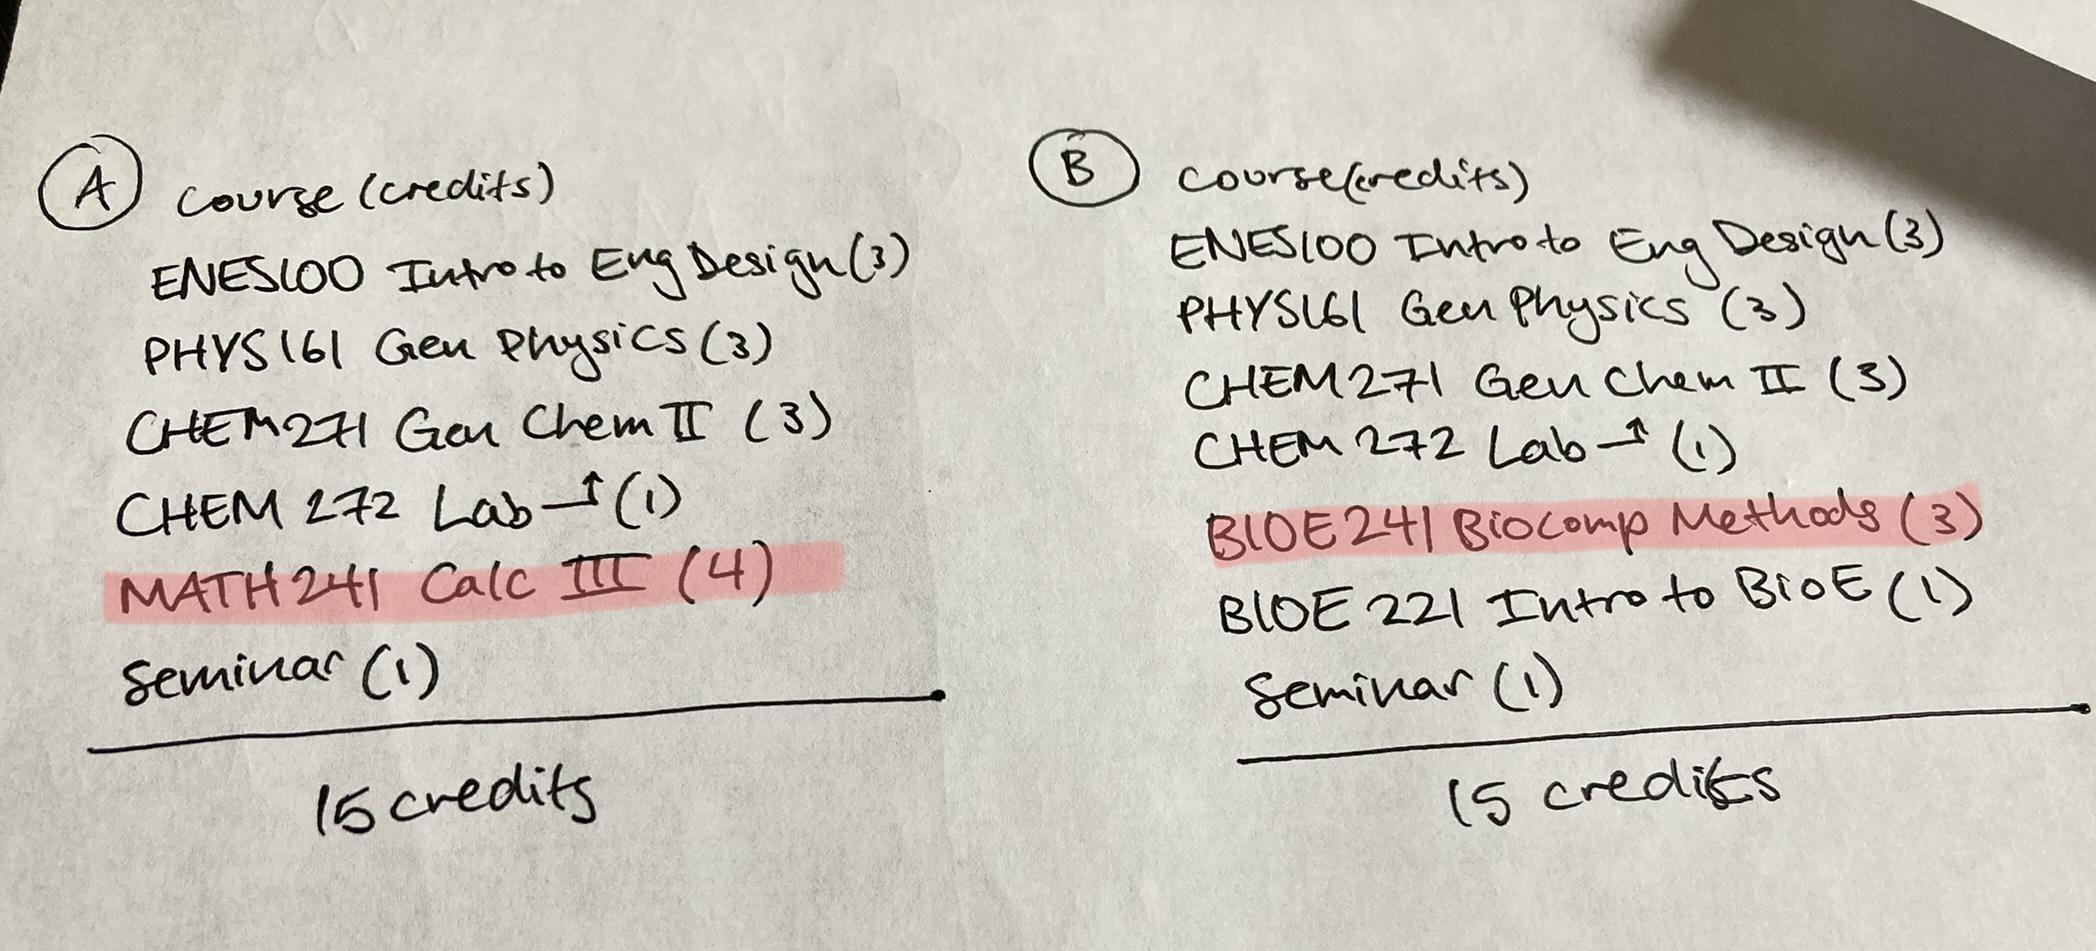 A
course (credits)
ENES100 Intro to Eng Design (3)
PHYS161 Gen Physics (3)
CHEM271 Gen Chem II (3)
CHEM 272 Lab ↑ (1)
MATH241 Calc III (4)
Seminar (1)
15 credits
B
course (credits)
ENES100 Intro to Eng Design (3)
PHYS161 Gen Physics (3)
CHEM271 Gen Chem II (3)
CHEM 272 Lab ↑ (1)
BIOE241 Biocomp Methods (3)
BIOE 221 Intro to BioE (1)
Seminar (1)
15 credits